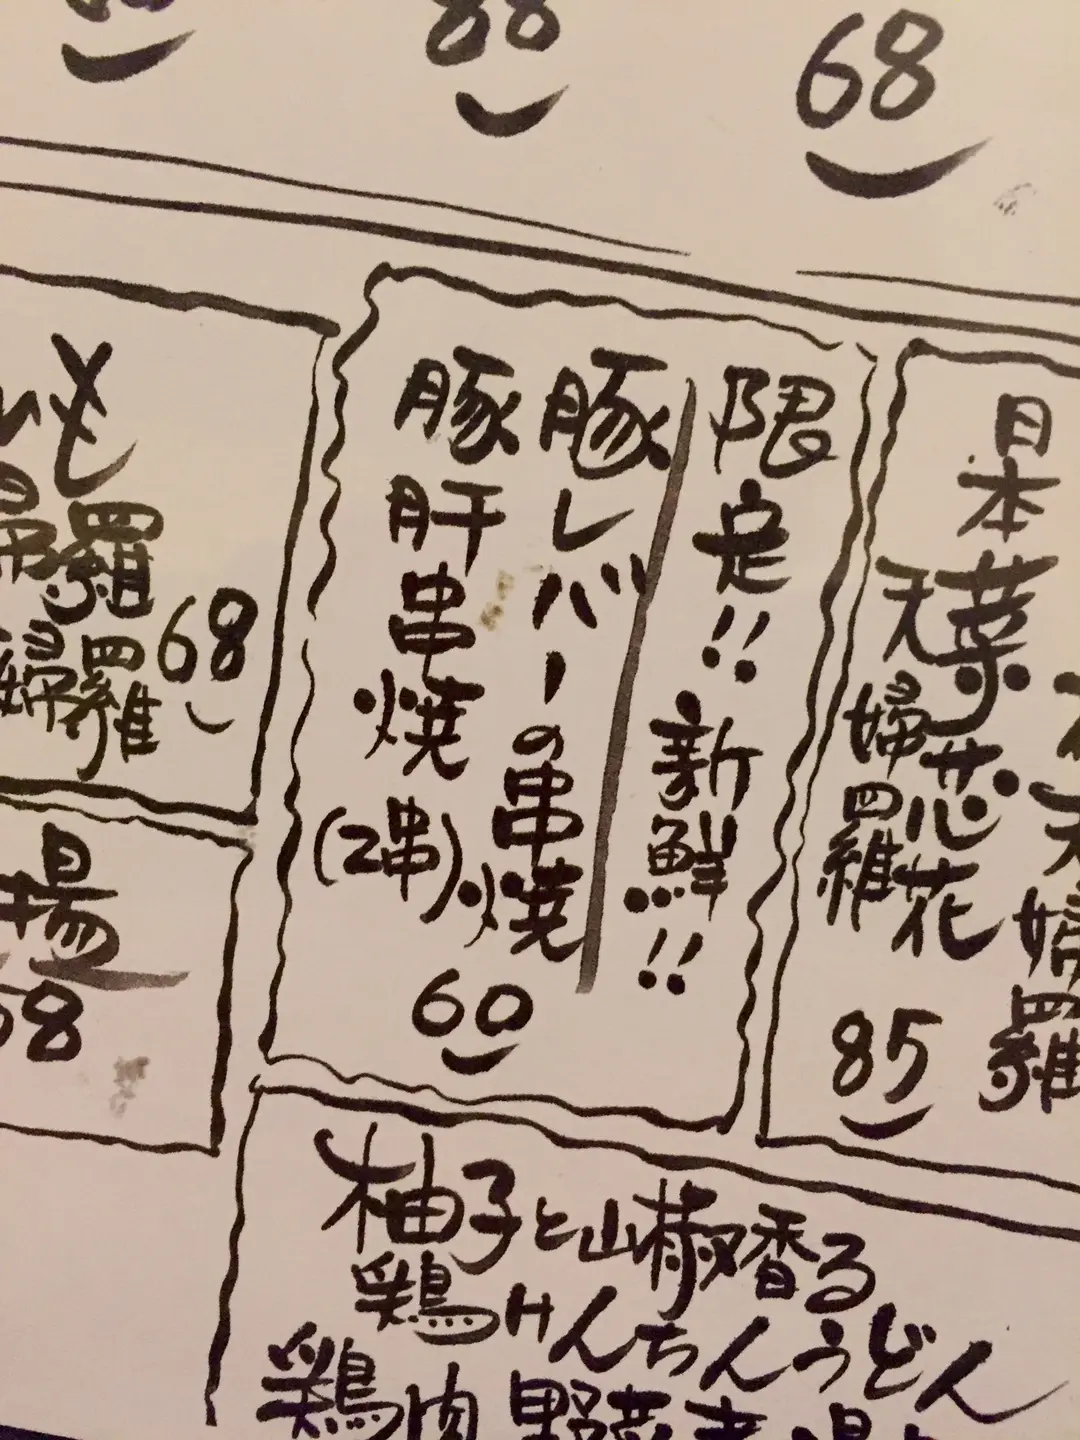 88
68
限定!! 新鮮!!
豚レバーの串焼
豚肝串焼(2串)
60
日本菜芯花
天婦羅
85
天婦羅
いも
羅
婦羅
68
揚
68
柚子と山椒香る
鶏けんちんうどん
鶏肉野菜